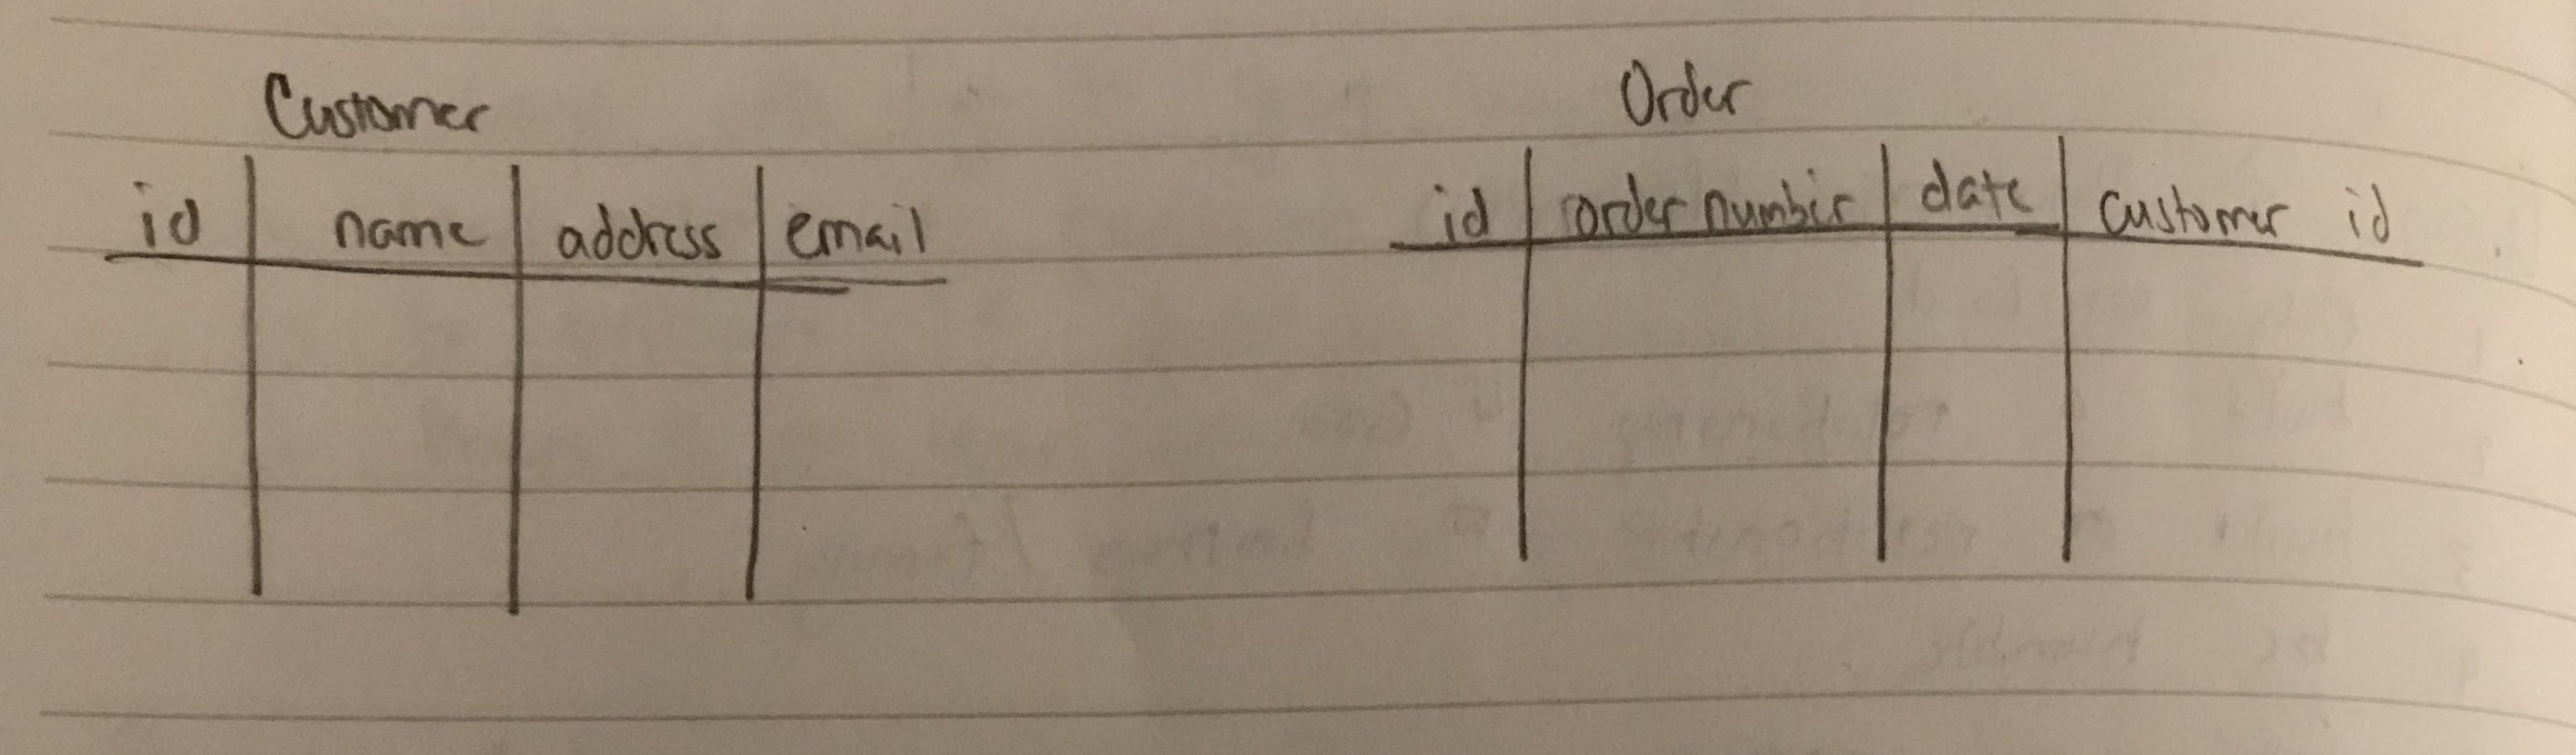 Customer
id name address email
Order
id order number date customer id